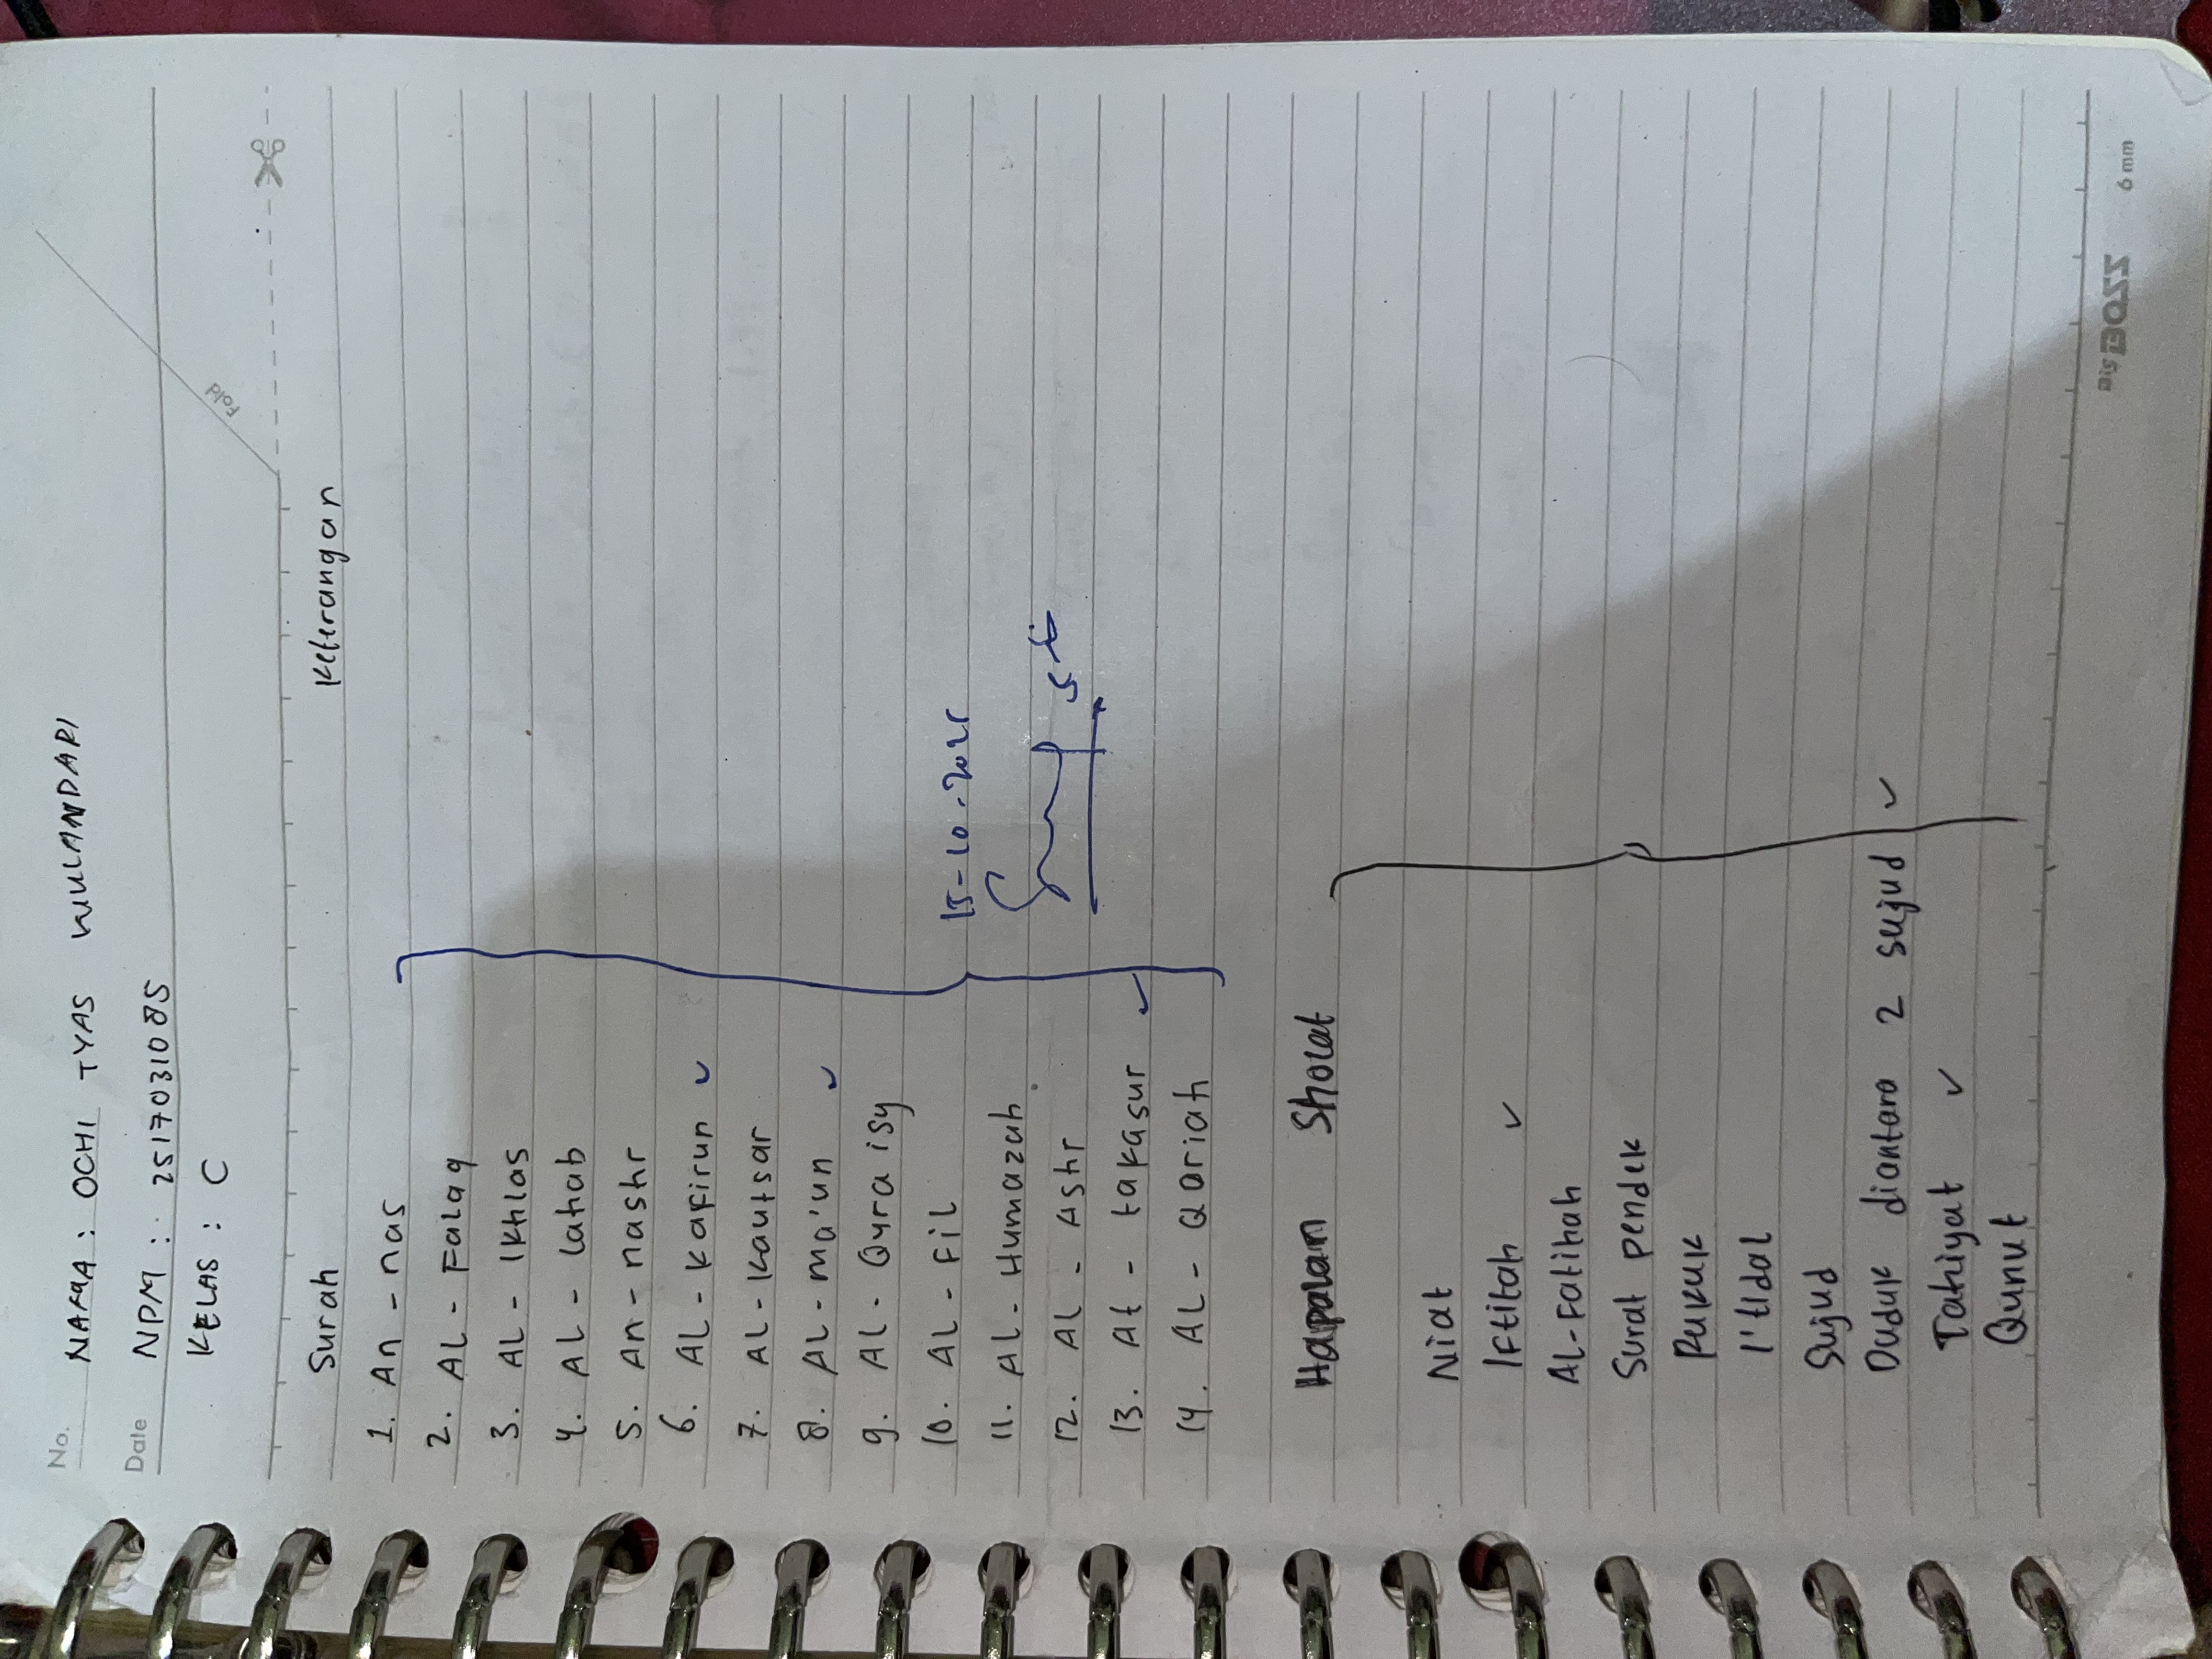 No.
NAMA : OCHI TYAS WULANDARI
Date
NPM : 2517031085
KELAS : C
Fold
Surah Keterangan
1. An - nas
2. AL - Falaq
3. AL - Ikhlas
4. AL - lahab
5. An - nashr
6. AL - Kafirun ✓
7. AL - Kautsar
8. AL - ma'un ✓
9. AL - Quraisy
10. AL - Fil
15-10-2025
11. AL - Humazah
12. AL - Ashr
13. At - takasur ✓
14. AL - Qariah
Hapalan Sholat
Niat
Iftitah ✓
AL-Fatihah
Surat pendek
Rukuk
I'tidal
Sujud
Duduk diantara 2 sujud ✓
Tahiyat ✓
Qunut
Big BOSS 6 mm